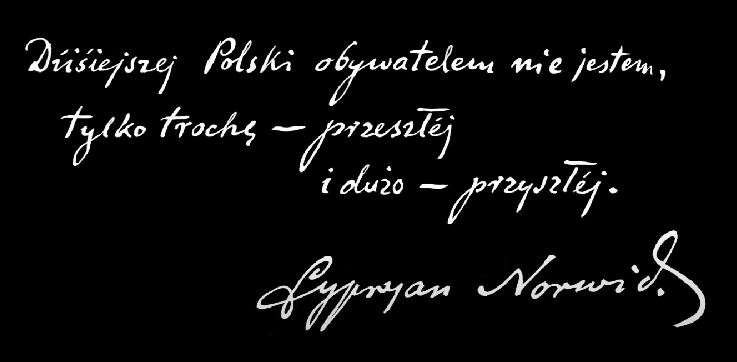 Dziśiejszej Polski obywatelem nie jestem,
tylko trochę — przeszłéj
i dużo — przyszłéj.
Cypryan Norwid.